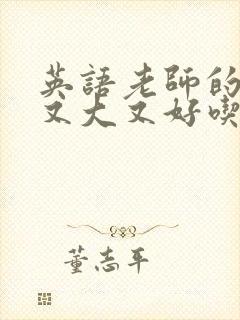 英語老師的
又大又好喫
董志平